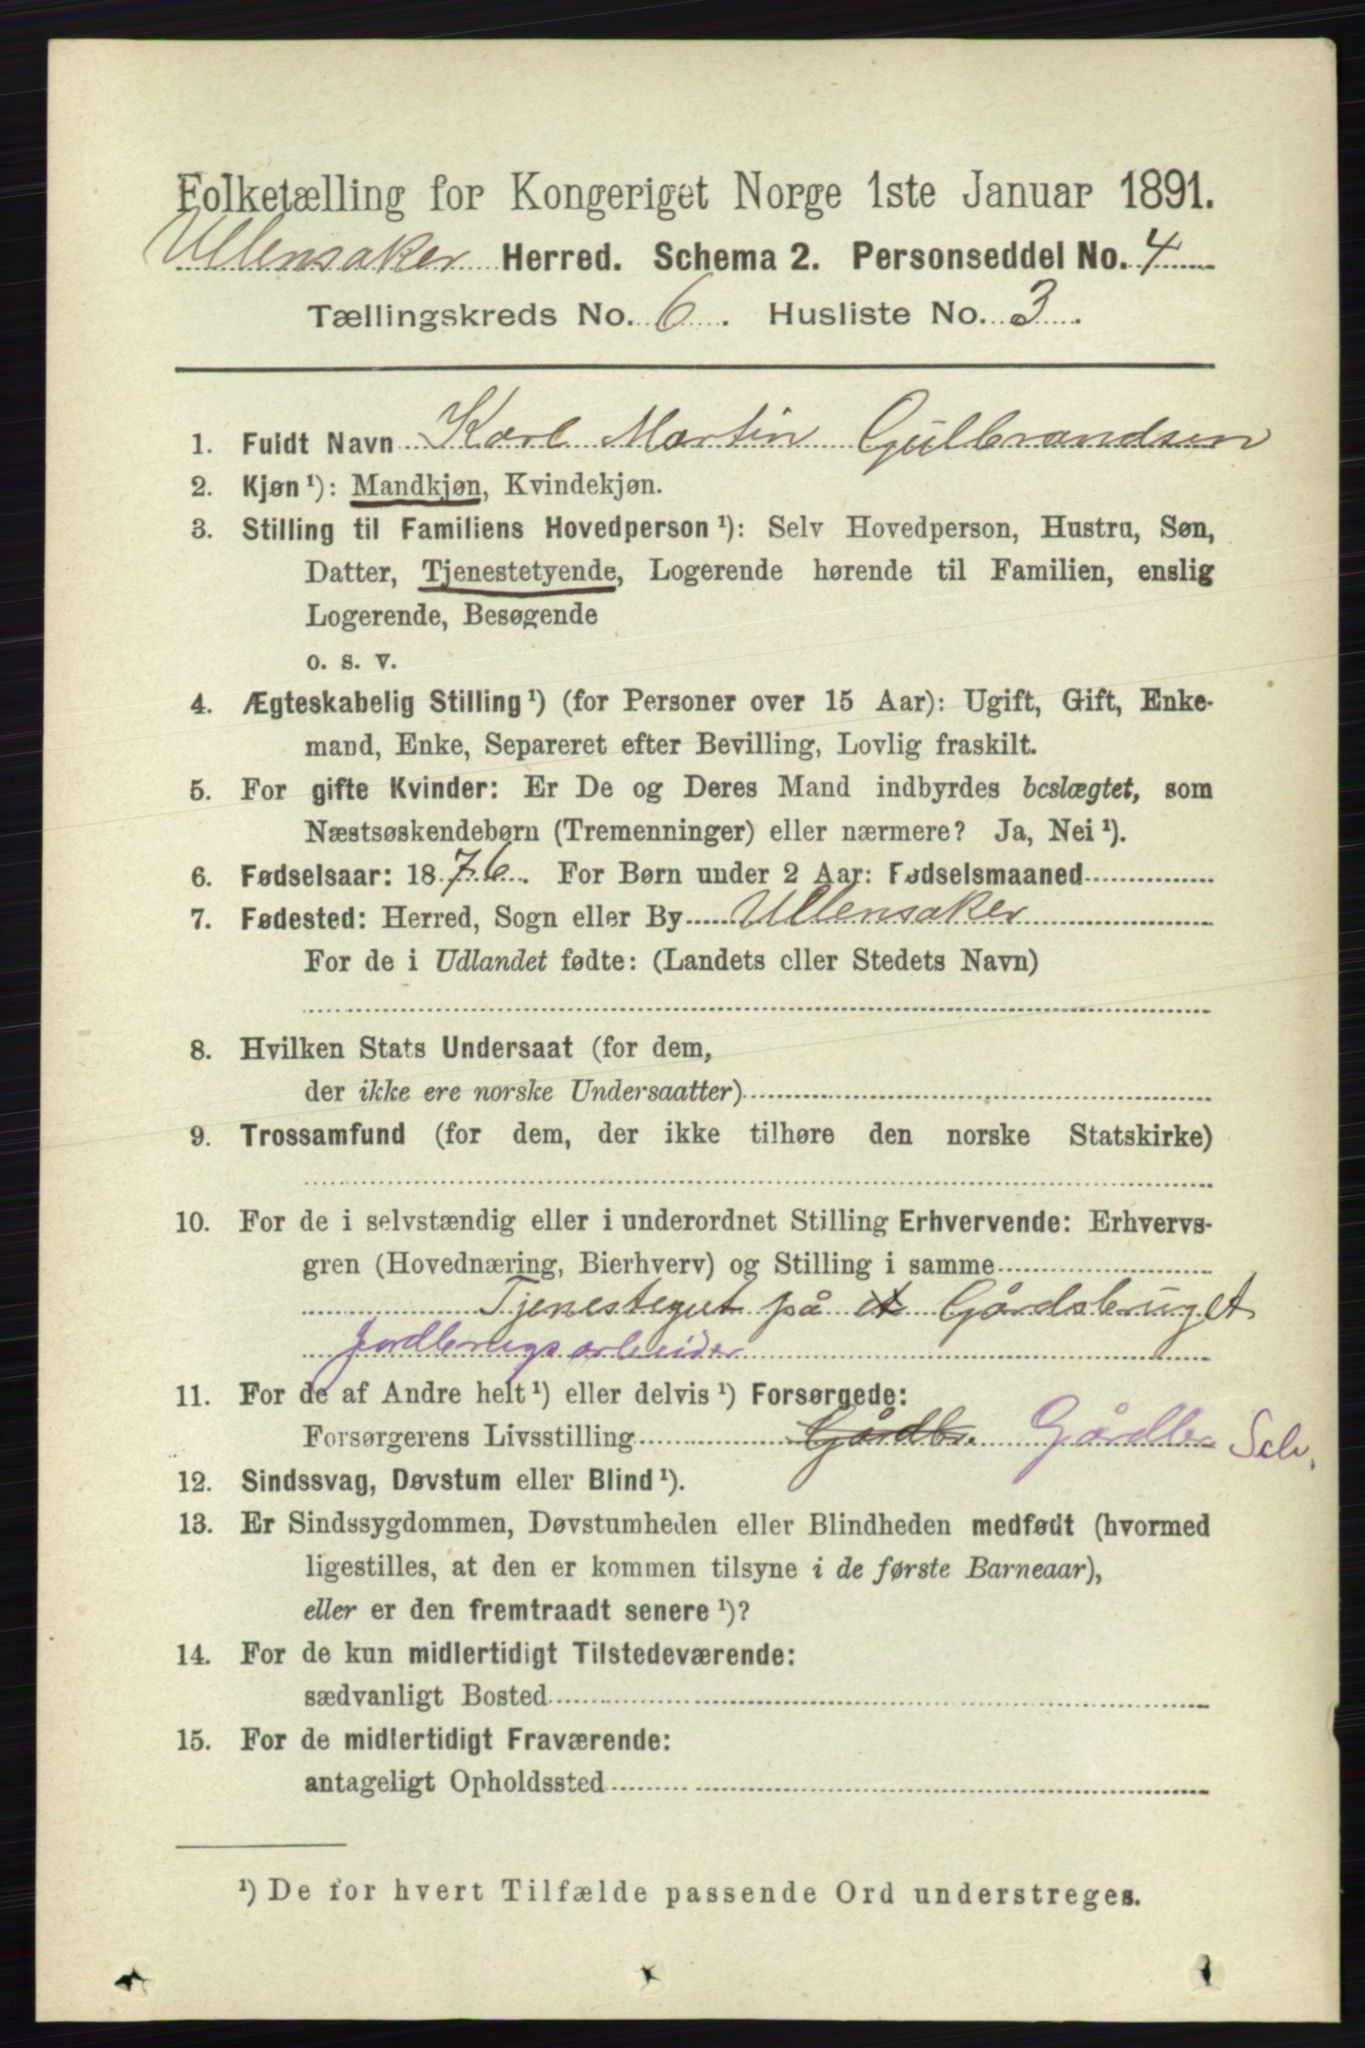 Folketælling for Kongeriget Norge 1ste Januar 1891.
Ullensaker Herred. Schema 2. Personseddel No. 4
Tællingskreds No. 6. Husliste No. 3.
1. Fuldt Navn Karl Martin Gulbrandsen
2. Kjøn ¹): Mandkjøn, Kvindekjøn.
3. Stilling til Familiens Hovedperson ¹): Selv Hovedperson, Hustru, Søn,
Datter, Tjenestetyende, Logerende hørende til Familien, enslig
Logerende, Besøgende
o. s. v.
4. Ægteskabelig Stilling ¹) (for Personer over 15 Aar): Ugift, Gift, Enke-
mand, Enke, Separeret efter Bevilling, Lovlig fraskilt.
5. For gifte Kvinder: Er De og Deres Mand indbyrdes beslægtet, som
Næstsøskendebørn (Tremenninger) eller nærmere? Ja, Nei ¹).
6. Fødselsaar: 1876. For Børn under 2 Aar: Fødselsmaaned
7. Fødested: Herred, Sogn eller By Ullensaker
For de i Udlandet fødte: (Landets eller Stedets Navn)
8. Hvilken Stats Undersaat (for dem,
der ikke ere norske Undersaatter)
9. Trossamfund (for dem, der ikke tilhøre den norske Statskirke)
10. For de i selvstændig eller i underordnet Stilling Erhvervende: Erhvervs-
gren (Hovednæring, Bierhverv) og Stilling i samme
Tjenestegut på Gårdsbruget
Jordbrugsarbeider
11. For de af Andre helt ¹) eller delvis ¹) Forsørgede:
Forsørgerens Livsstilling Gårdbr. Gårdbr Selv.
12. Sindssvag, Døvstum eller Blind ¹).
13. Er Sindssygdommen, Døvstumheden eller Blindheden medfødt (hvormed
ligestilles, at den er kommen tilsyne i de første Barneaar),
eller er den fremtraadt senere ¹)?
14. For de kun midlertidigt Tilstedeværende:
sædvanligt Bosted
15. For de midlertidigt Fraværende:
antageligt Opholdssted
¹) De for hvert Tilfælde passende Ord understreges.